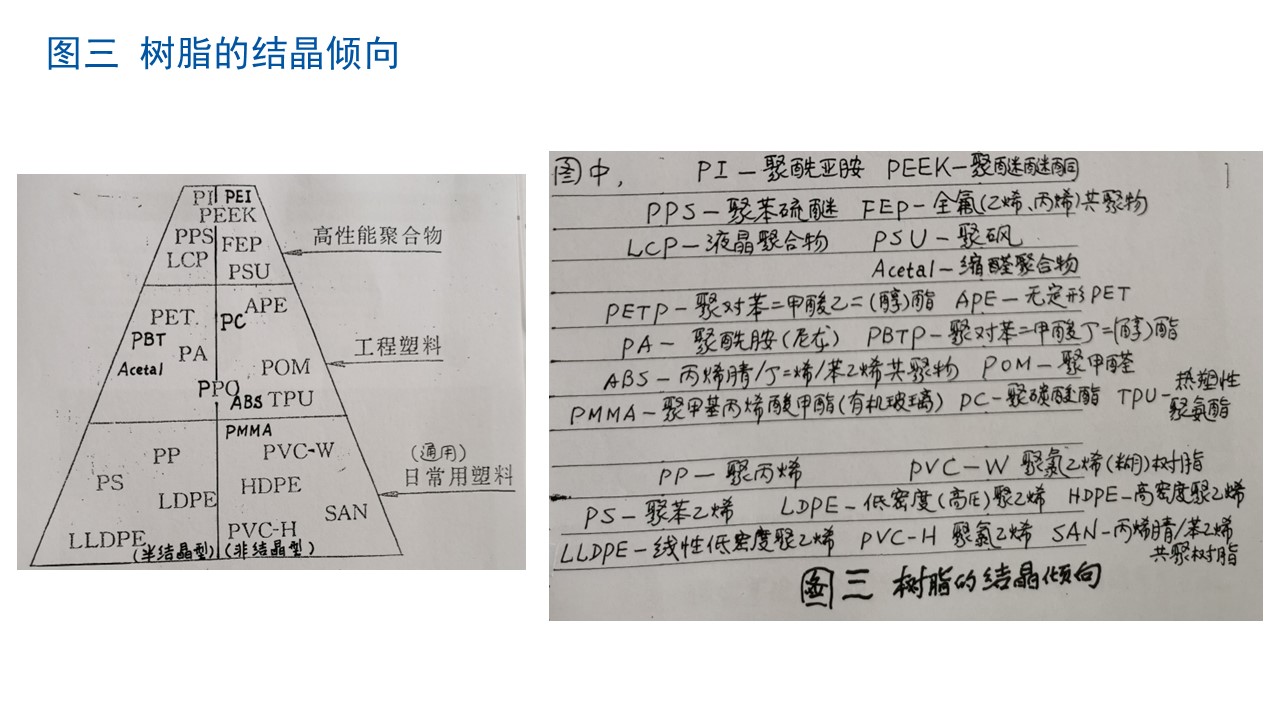 图三 树脂的结晶倾向
PI PEI
PEEK
PPS FEP
LCP PSU
高性能聚合物
PET APE
PBT PC
PA
Acetal POM
工程塑料
PPO ABS TPU
PMMA
PP PVC-W
(通用)
日常用塑料
PS HDPE
LDPE SAN
LLDPE PVC-H
(半结晶型) (非结晶型)
图中, PI—聚酰亚胺 PEEK—聚醚醚酮
PPS—聚苯硫醚 FEP—全氟(乙烯、丙烯)共聚物
LCP—液晶聚合物 PSU—聚砜
Acetal—缩醛聚合物
PETP—聚对苯二甲酸乙二(醇)酯 APE—无定形PET
PA—聚酰胺(尼龙) PBTP—聚对苯二甲酸丁二(醇)酯
ABS—丙烯腈/丁二烯/苯乙烯共聚物 POM—聚甲醛
PMMA—聚甲基丙烯酸甲酯(有机玻璃) PC—聚碳酸酯 TPU—热塑性
聚氨酯
PP—聚丙烯 PVC-W 聚氯乙烯(糊)树脂
PS—聚苯乙烯 LDPE—低密度(高压)聚乙烯 HDPE—高密度聚乙烯
LLDPE—线性低密度聚乙烯 PVC-H 聚氯乙烯 SAN—丙烯腈/苯乙烯
共聚树脂
图三 树脂的结晶倾向